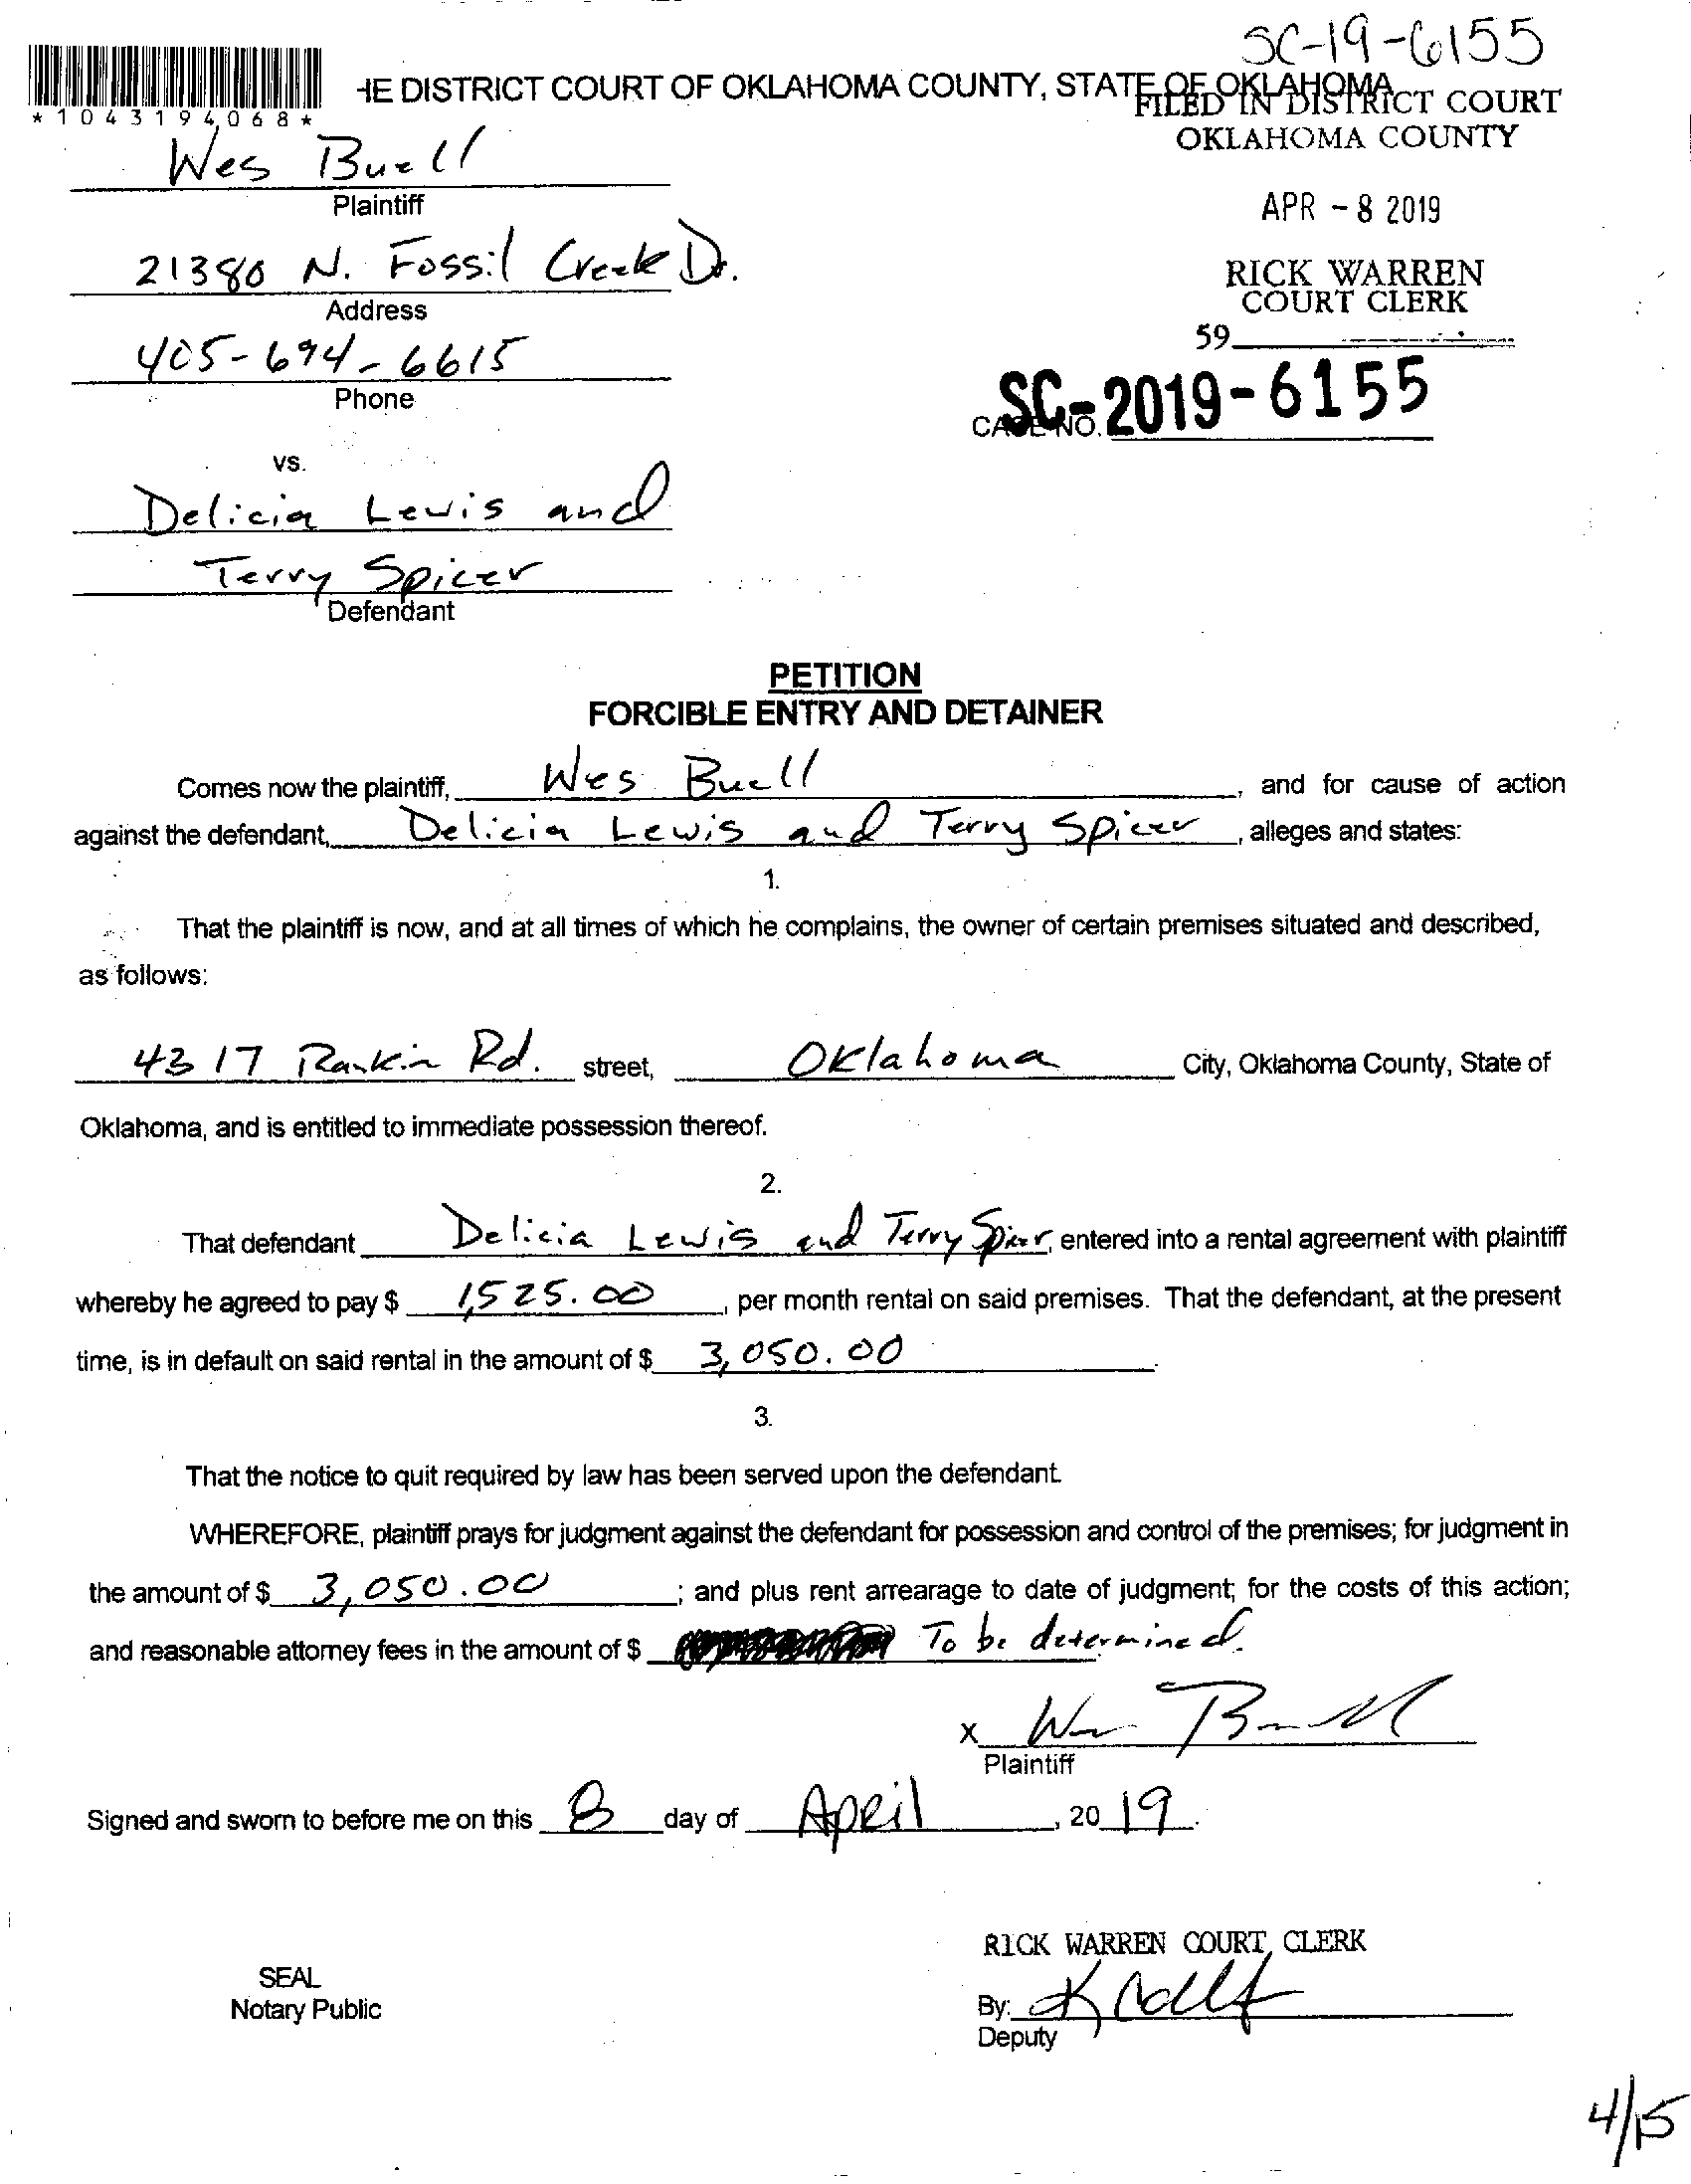 SC-19-6155
*1043194068*
HE DISTRICT COURT OF OKLAHOMA COUNTY, STATE OF OKLAHOMA
FILED IN DISTRICT COURT
OKLAHOMA COUNTY
Wes Buell
Plaintiff
APR - 8 2019
21380 N. Fossil Creek Dr.
Address
RICK WARREN
COURT CLERK
59
405-694-6615
Phone
CASE NO. SC-2019-6155
vs.
Delicia Lewis and
Terry Spicer
Defendant
PETITION
FORCIBLE ENTRY AND DETAINER
Comes now the plaintiff, Wes Buell, and for cause of action
against the defendant, Delicia Lewis and Terry Spicer, alleges and states:
1.
That the plaintiff is now, and at all times of which he complains, the owner of certain premises situated and described,
as follows:
4317 Rankin Rd. street, Oklahoma City, Oklahoma County, State of
Oklahoma, and is entitled to immediate possession thereof.
2.
That defendant Delicia Lewis and Terry Spicer, entered into a rental agreement with plaintiff
whereby he agreed to pay $ 1,525.00, per month rental on said premises. That the defendant, at the present
time, is in default on said rental in the amount of $ 3,050.00.
3.
That the notice to quit required by law has been served upon the defendant.
WHEREFORE, plaintiff prays for judgment against the defendant for possession and control of the premises; for judgment in
the amount of $ 3,050.00; and plus rent arrearage to date of judgment; for the costs of this action;
and reasonable attorney fees in the amount of $ To be determined.
X
Plaintiff
Signed and sworn to before me on this 8 day of April, 2019.
RICK WARREN COURT CLERK
SEAL
Notary Public
By:
Deputy
4/15